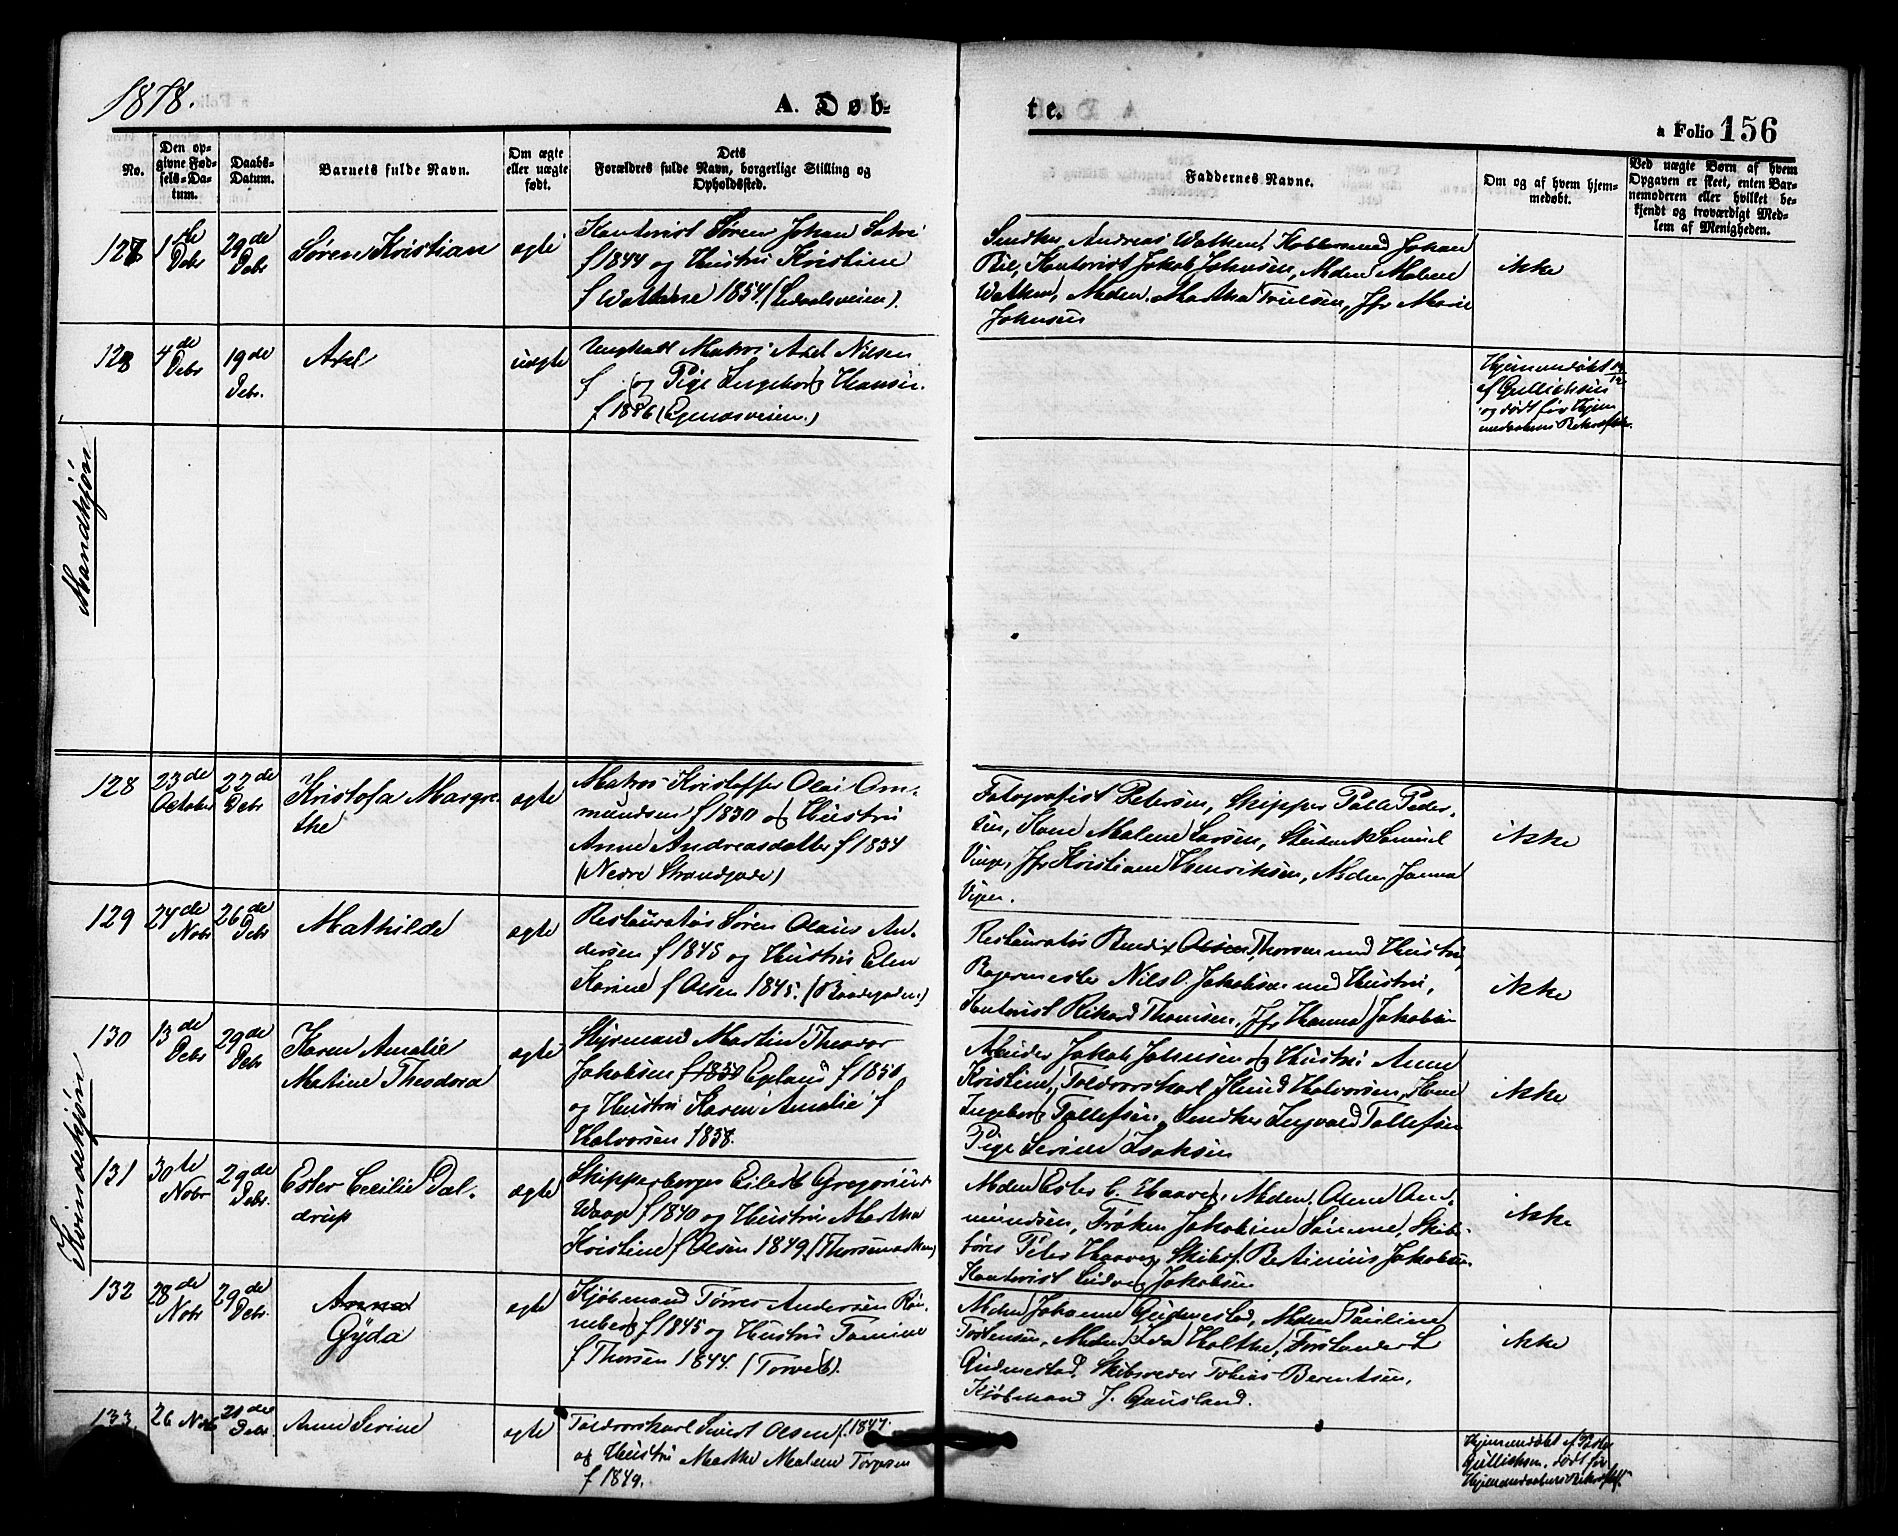 1878.
A. Døb-
te.
a Folio 156
No.
Den op-
givne Fød-
sels-Da-
tum.
Daabs-
Datum.
Barnets fulde Navn.
Om ægte
eller uægte
født.
Dets
Forældres fulde Navn, borgerlige Stilling og
Opholdssted.
Faddernes Navne.
Om og af hvem hjem-
medøbt.
Ved uægte Børn af hvem
Opgaven er skeet, enten Bar-
nemoderen eller hvilket be-
kjendt og troværdigt Med-
lem af Menigheden.
Mandkjøn
127
1ste
Debr
29de
Debr
Søren Kristian
ægte
Kontorist Søren Johan
f 1844 og Hustru Kristine
f Watne 1854. (Ledaalsveien).
Snedker Andreas Watne, Kobbersmed Johan
Kontorist Jakob Johnsen, Mdm Malene
Watne, Mdm Martha Troelsen, Jfr Marie
Johnsen
ikke
128
4de
Debr
19de
Debr.
Axel
uægte
Ungkall Matros Axel Nilsen
f og Pige Ingeborg Hansen
f 1856 (Egenæsveien.)
Hjemmedøbt
af Gullichsen
og død før Hjem
medaabens
128
23de
October
22de
Debr
Kristofa Margre
the
ægte
Matros Kristoffer Olai Om-
mundsen f 1830 og Hustru
Anne Andreasdatter f 1834
(Nedre Strandgade)
Fotografist Petersen, Skipper Palle Peder-
sen, Kone Malene Larsen, Student Samuel
Jfr Kristiane Henriksen, Mdm Janna
ikke
129
24de
Nobr
26de
Debr
Mathilde
ægte
Restauratør Søren Olaus An-
dersen f 1845 og Hustru Elen
Karine f Olsen 1845.
Restauratør Bendix Thorsen med Hustru,
Bagermester Nils L. Jakobsen med Hustru,
Kontorist Rikard Thomsen, Jfr Hanna Jakobsen
ikke
Kvindekjøn
130
13de
Debr
29de
Debr
Karen Amalie
Matine Theodora
ægte
Styrmand Martin Theodor
Jakobsen f 1850
og Hustru Karen Amalie f
Halvorsen 1858.
Arbeider Jakob Johnsen og Hustru Anne
Kristine, Toldrorskarl Knud Halvorsen, Kone
Ingeborg Tollefsen, Snedker Ingvald Tollefsen
Pige Serine Isaksen
ikke
131
30te
Nobr
29de
Debr.
Ester Cecilie Dal-
drup
ægte
Skipperborger Eilert Gregorius
Waage f 1840 og Hustru Martha
Kristine f Olsen 1849
Mdm Ester C. Haaver, Mdm Olene Om-
mundsen, Frøken Jakobine Sømme, Skibs-
fører Peter Haaver, Skibsf. Bertinius Jakobsen
Kontorist Ludvig Jakobsen
ikke
132
28de
Nobr
29de
Debr.
Anna
Gyda
ægte
Kjøbmand Tørres Andersen Røn-
neberg f 1845 og Hustru Tomine
f Thorsen 1844. (Torvet).
Mdm Johanne Gudmestad, Mdm Pauline
Torstensen, Mdm Ida Holthe, Forstander L
Gudmestad, Skibsreder Tobias Berentsen,
Kjøbmand J. Gausland.
ikke
133
26 Nobr
Debr.
Anne Serine
ægte
Toldrorskarl Sivert Olsen f. 1847.
og Hustru Marthe Malene Torgersen
f 1849.
Hjemmedøbt af
Gullichsen, død før
Hjemmedaabens